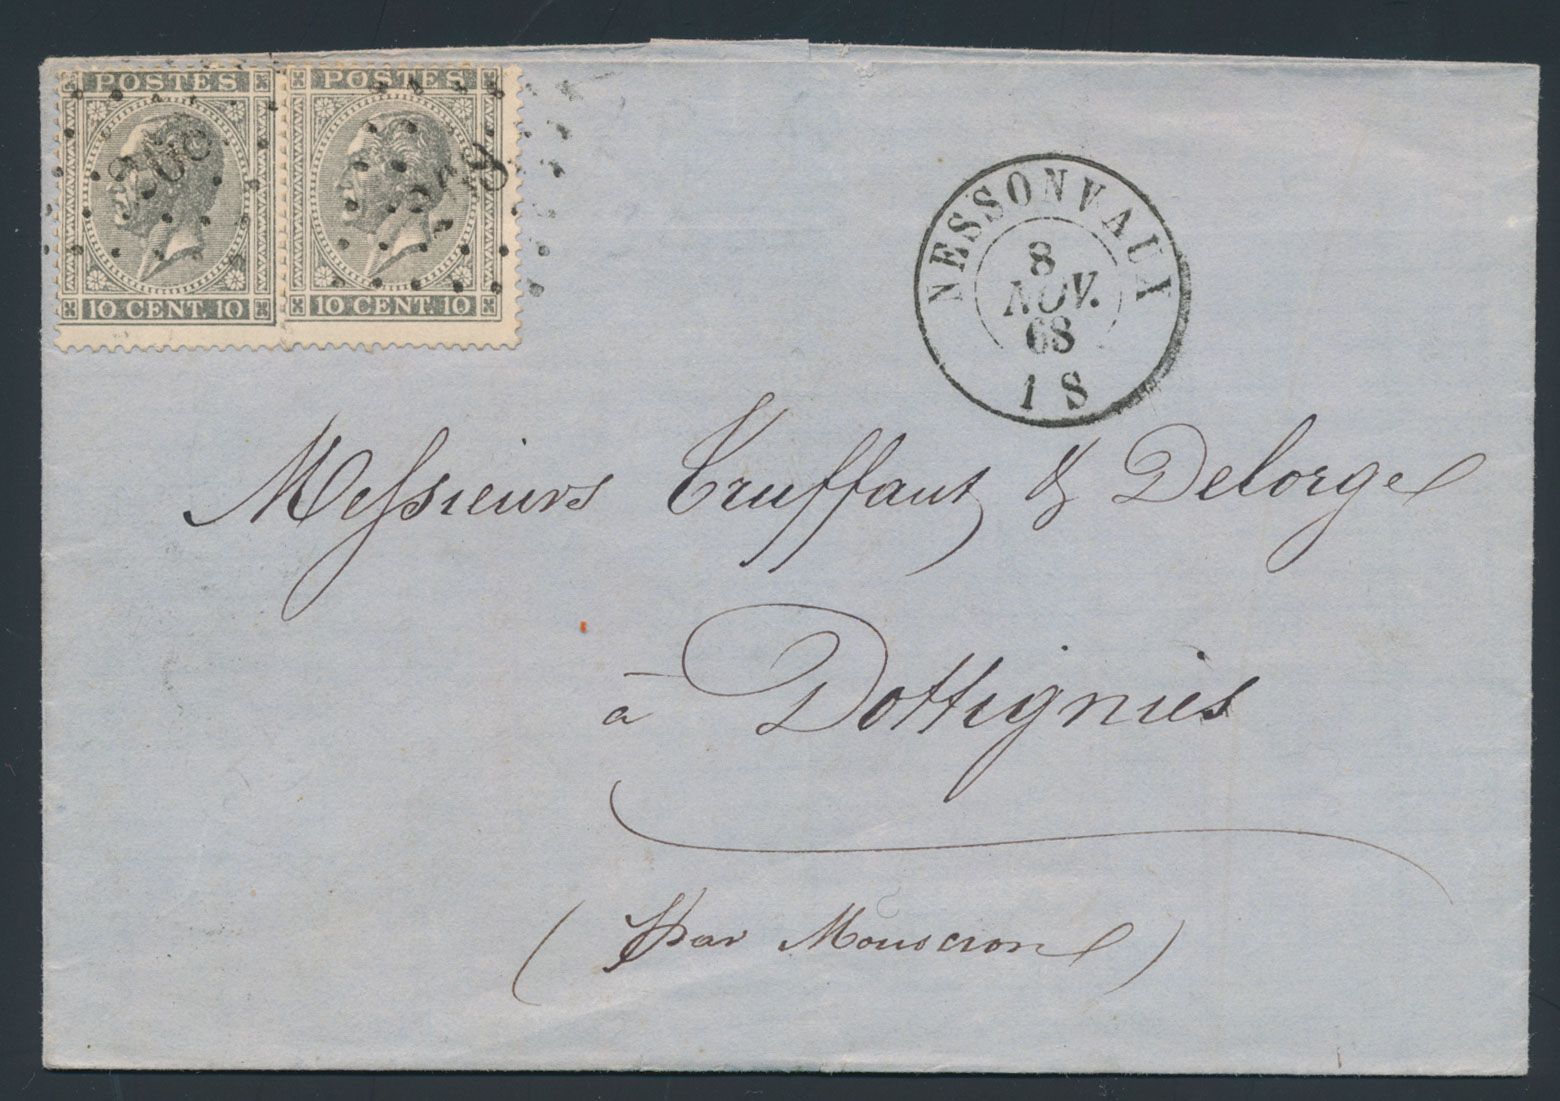 POSTES POSTES
10 CENT. 10 10 CENT. 10
NESSONVAUX
8
NOV.
68
1 S
Messieurs Truffaut & Delorge
à Dottignies
(par Mouscron)